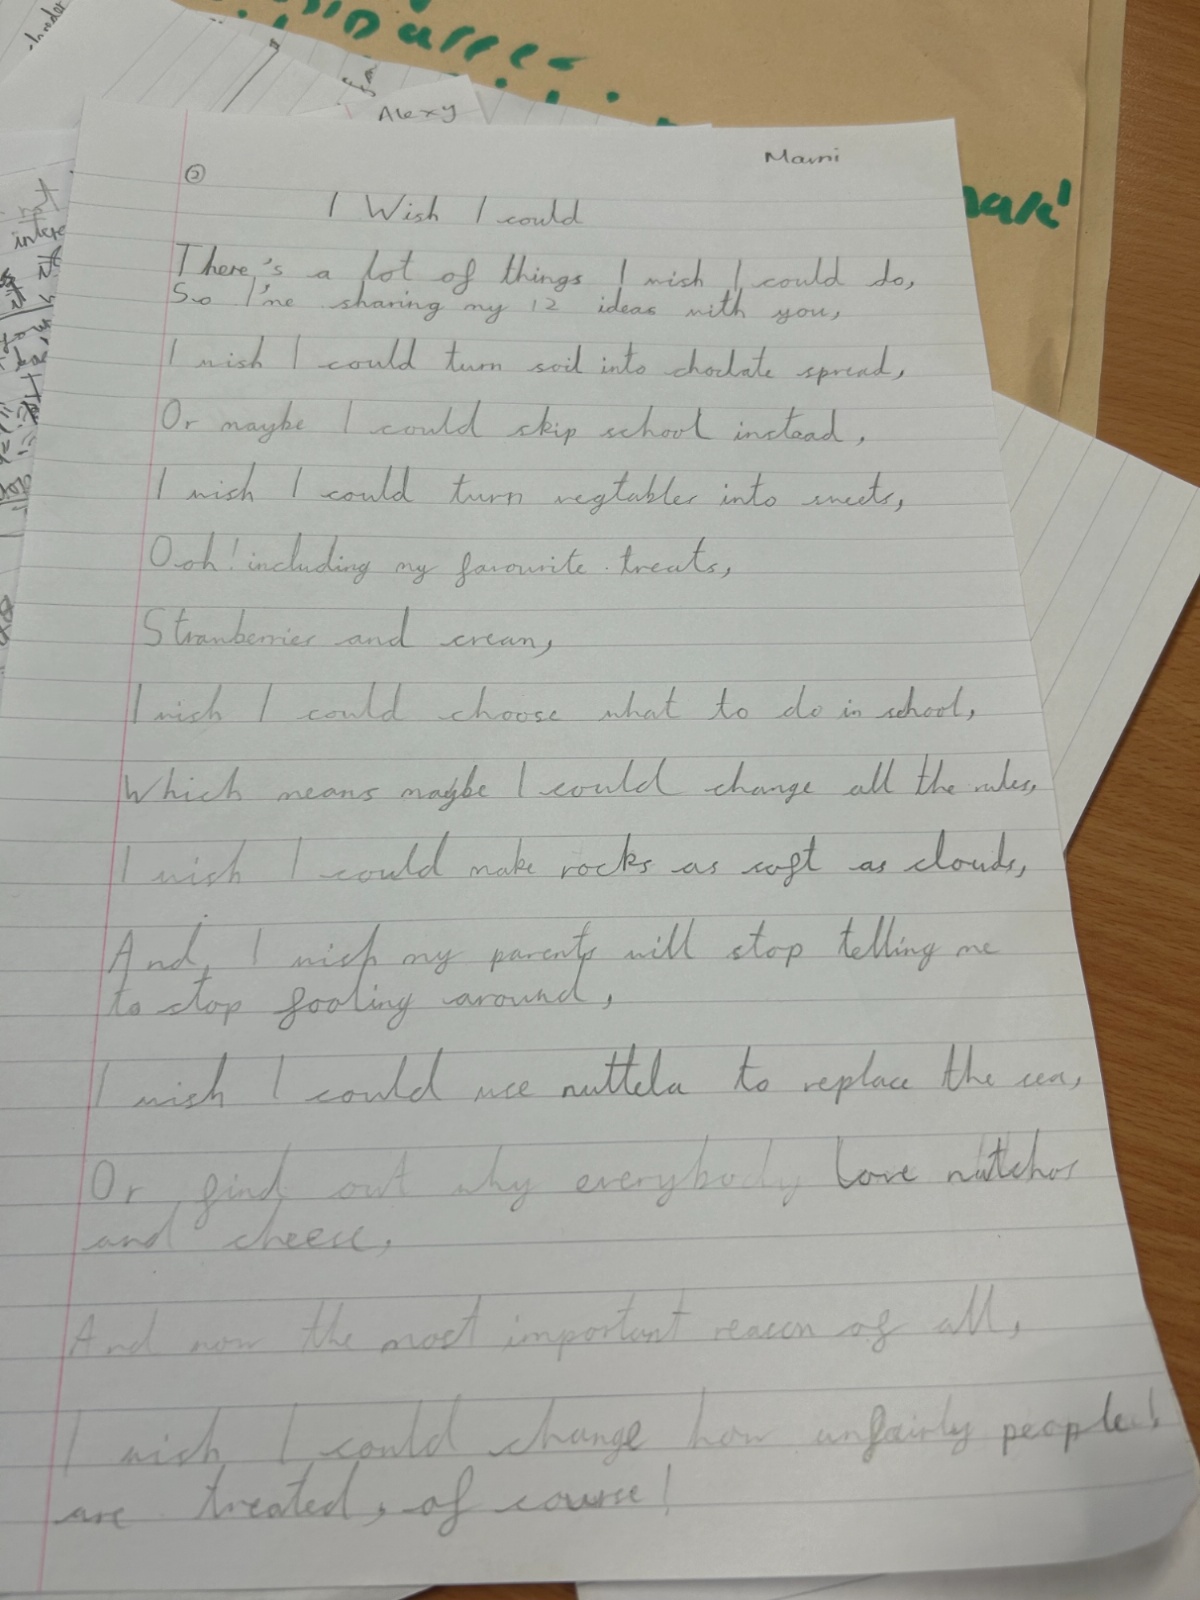 Alexy
Marni
②
I Wish I could
There's a lot of things I wish I could do,
So I'me sharing my 12 ideas with you,
I wish I could turn soil into choclate spread,
Or maybe I could skip school instead,
I wish I could turn vegtables into sweets,
Ooh! including my favourite treats,
Strawberries and cream,
I wish I could choose what to do in school,
Which means maybe I could change all the rules,
I wish I could make rocks as soft as clouds,
And, I wish my parents will stop telling me
to stop fooling around,
I wish I could use nuttela to replace the sea,
Or find out why everybody love natchos
and cheese,
And now the most important reason of all,
I wish I could change how unfairly people
are treated, of course!